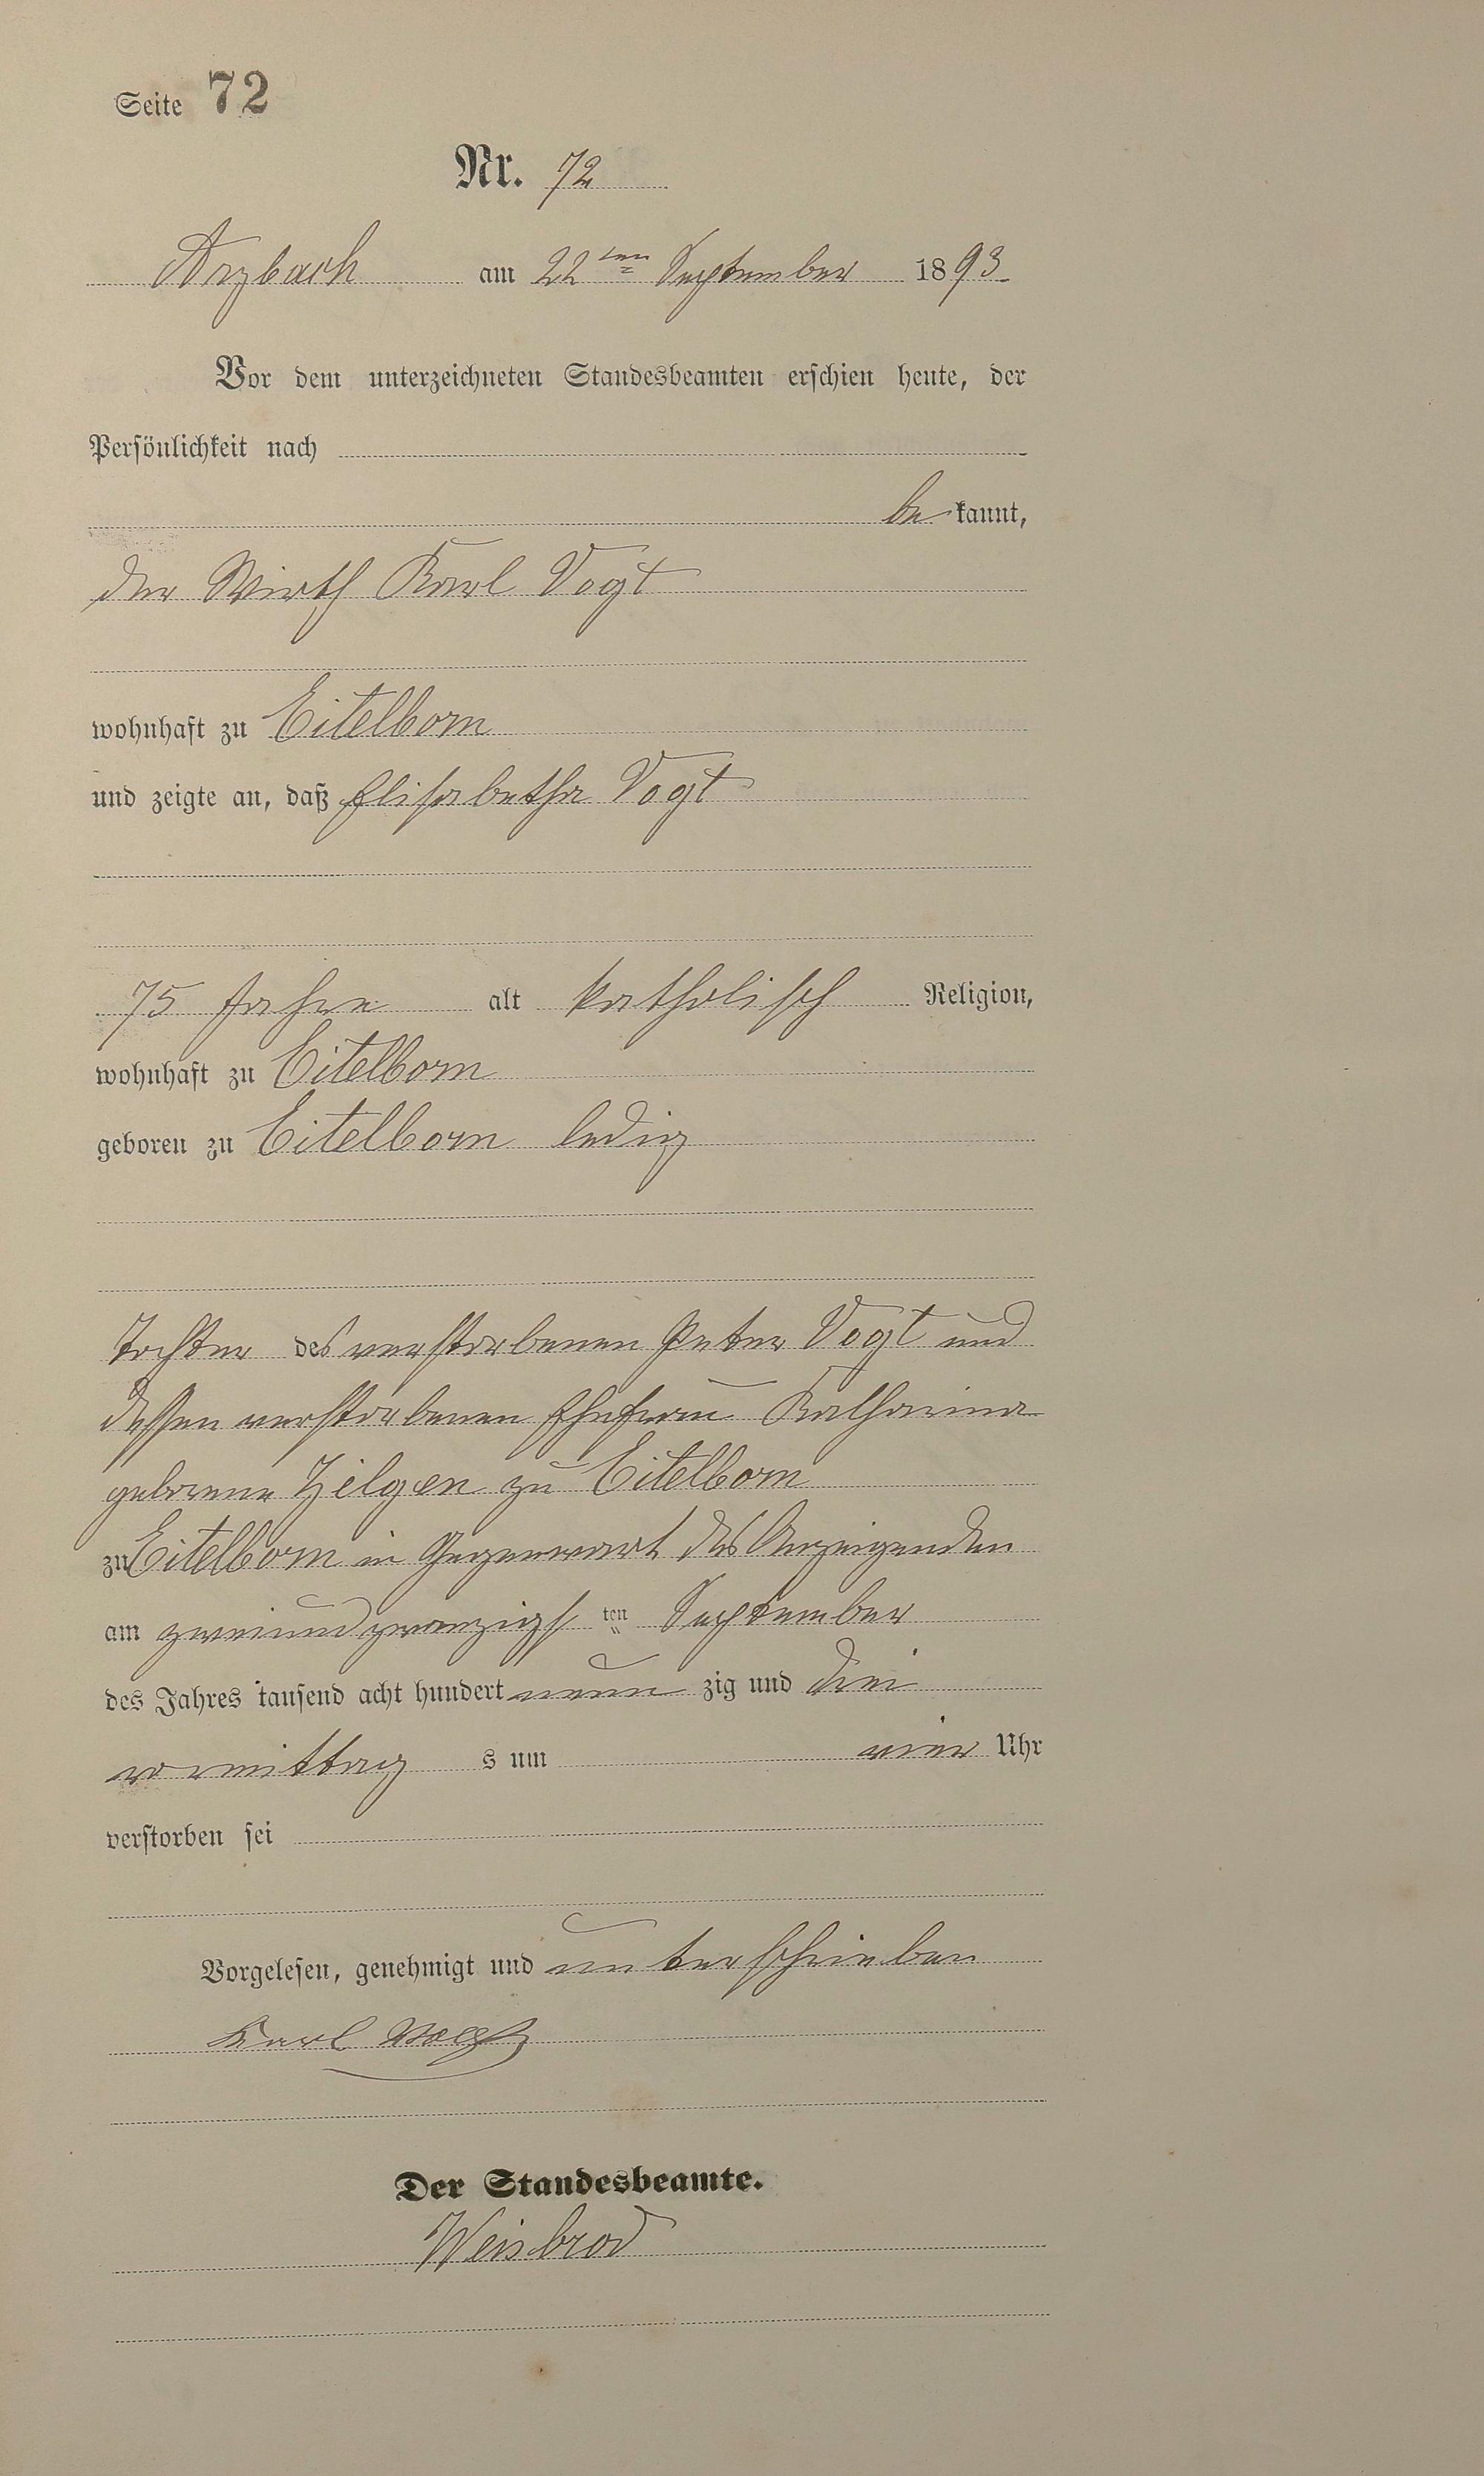 Seite 72
Nr. 72
Arzbach am 22ten September 1893
Vor dem unterzeichneten Standesbeamten erschien heute, der
Persönlichkeit nach
be kannt,
der Wirth Karl Vogt
wohnhaft zu Eitelborn
und zeigte an, daß Elisabetha Vogt
75 Jahre alt katholisch Religion,
wohnhaft zu Eitelborn
geboren zu Eitelborn ledig
Tochter des verstorbenen Peter Vogt und
dessen verstorbenen Ehefrau Katharina
geborene Zilgen zu Eitelborn
zu Eitelborn in Gegenwart des Anzeigenden
am zweiundzwanzigsten September
des Jahres tausend acht hundert neun zig und drei
vormittag s um vier Uhr
verstorben sei
Vorgelesen, genehmigt und unterschrieben
Karl Vogt
Der Standesbeamte.
Weisbrod